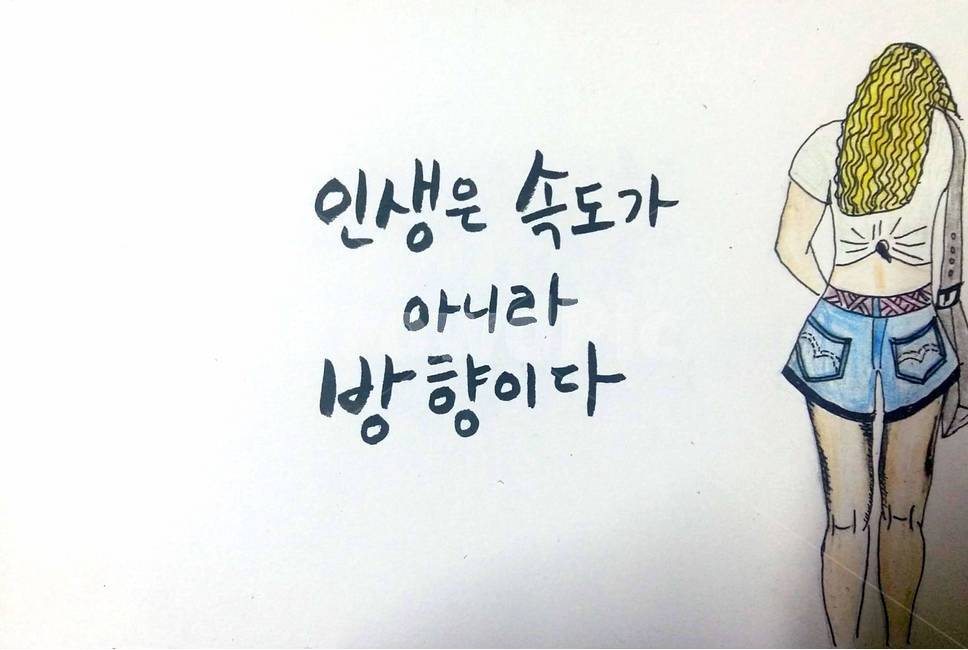 인생은 속도가
아니라
방향이다